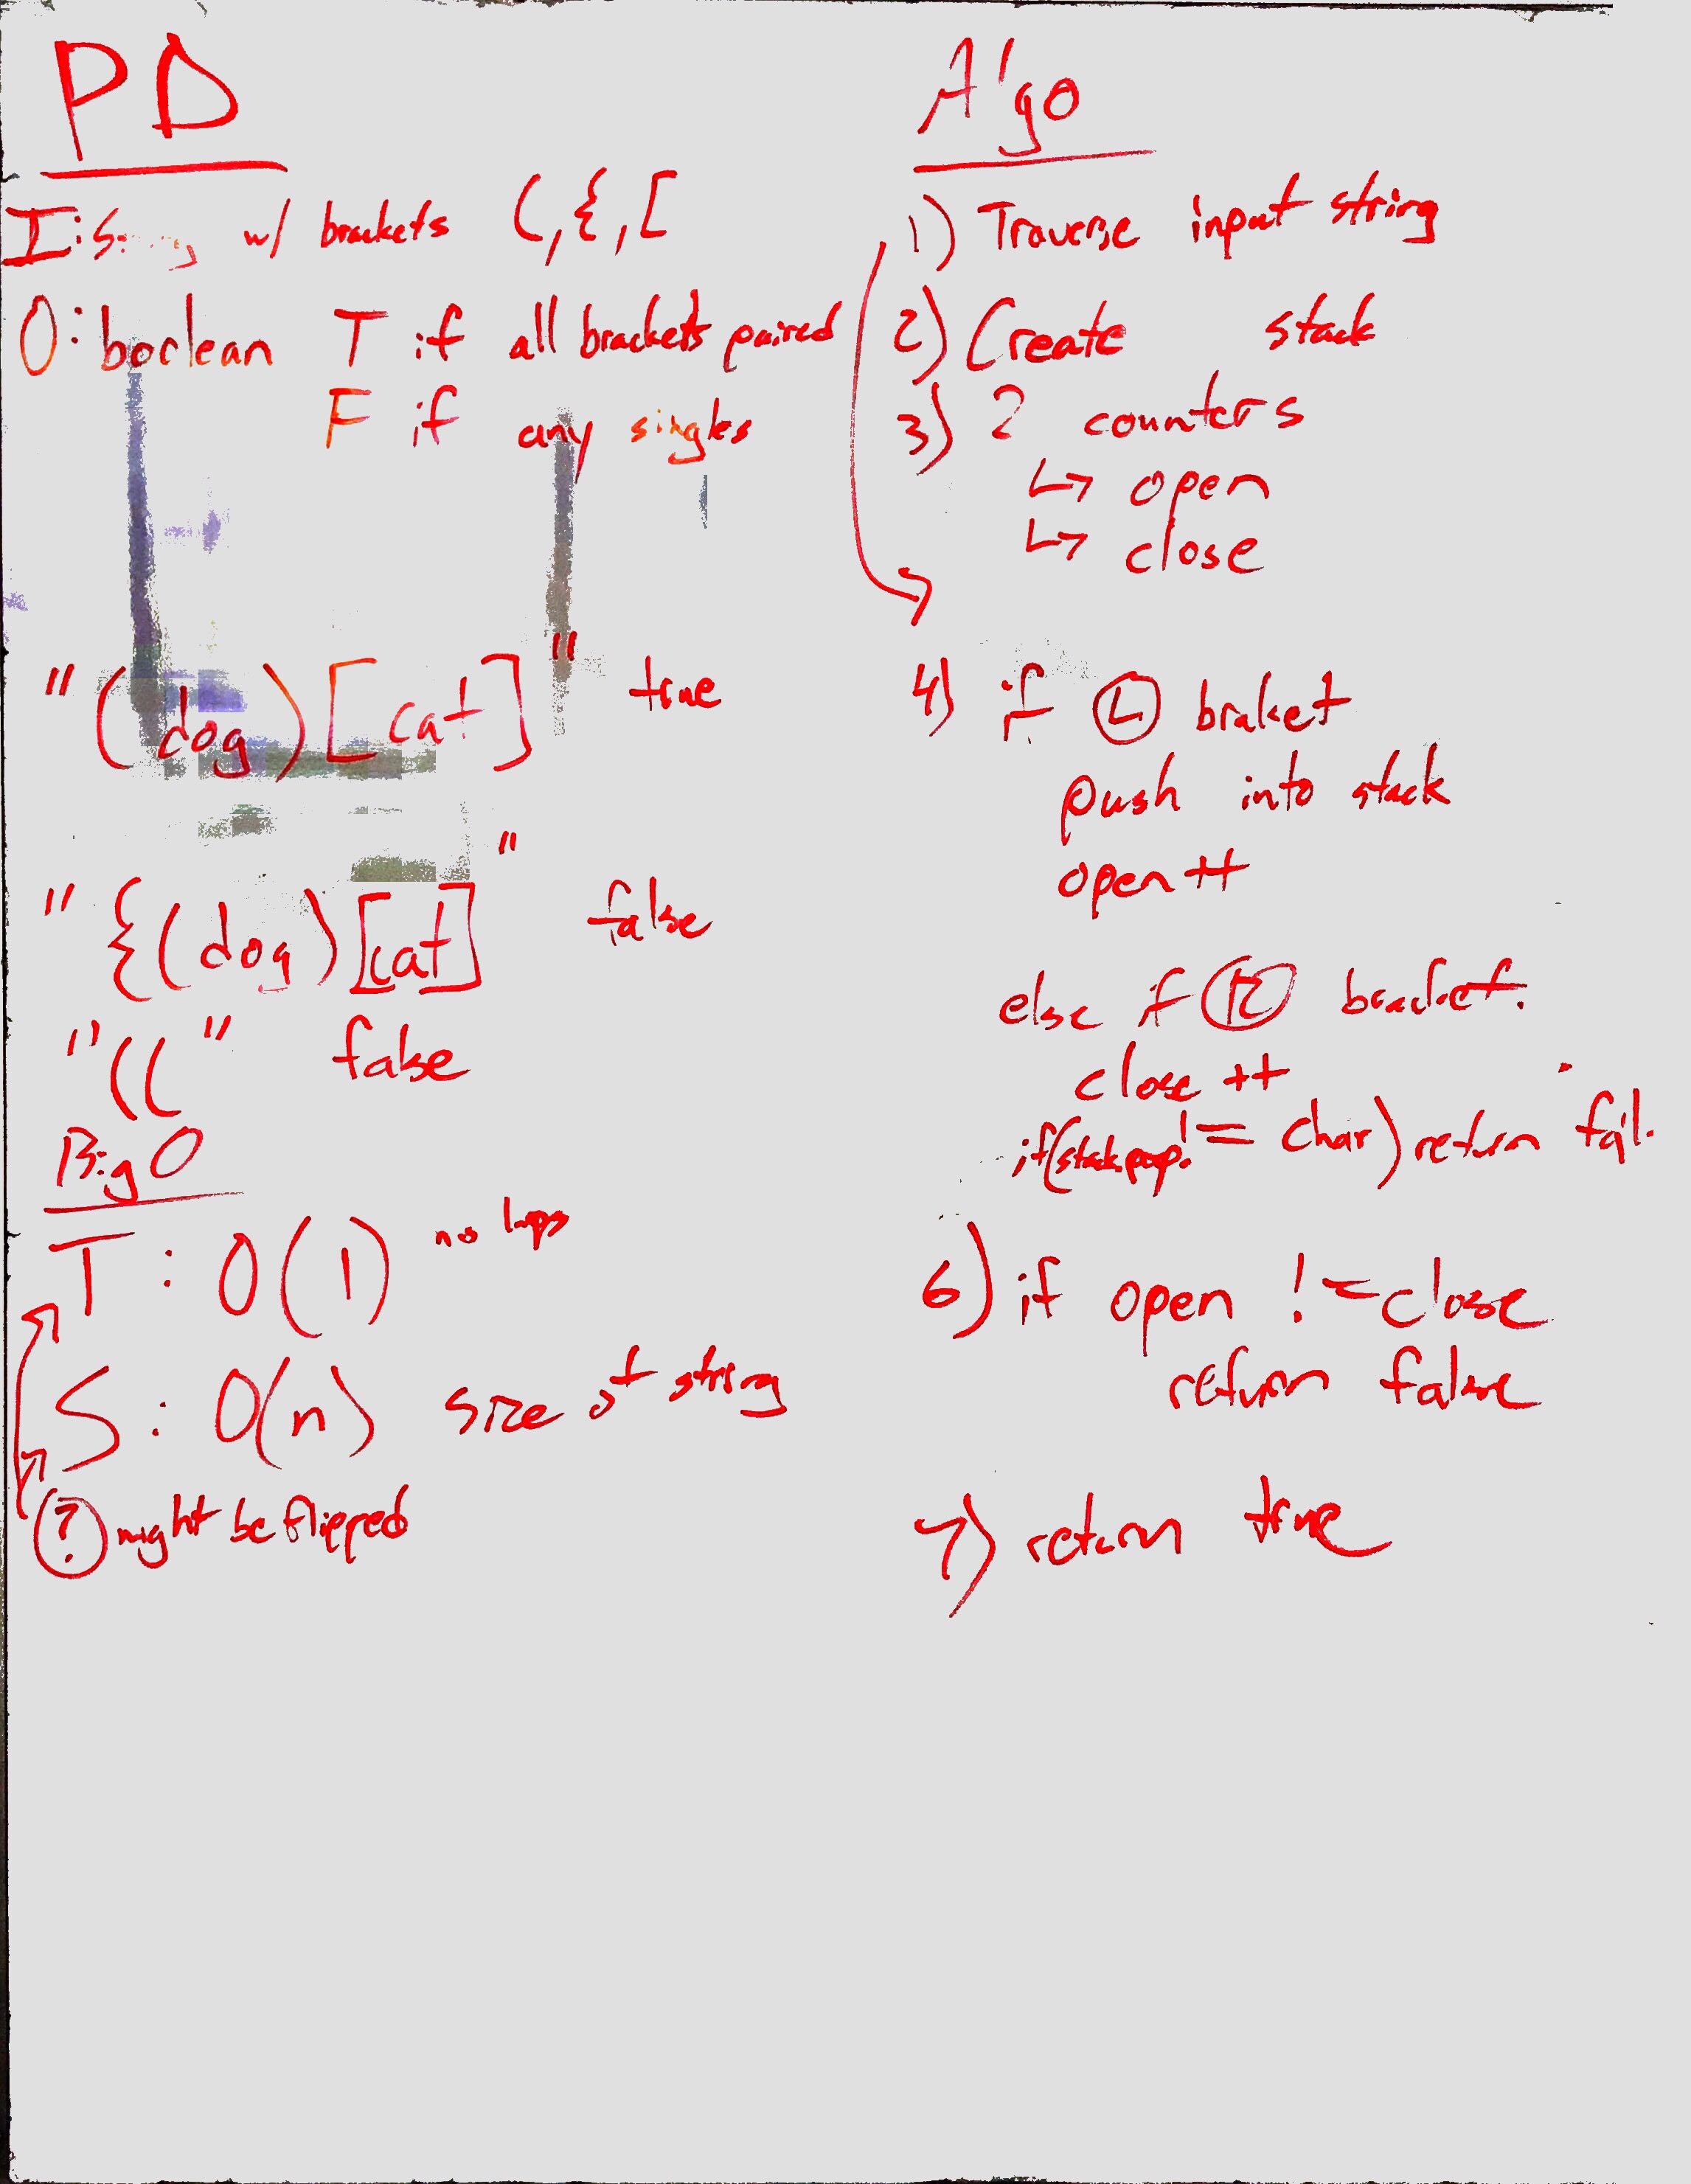 PD
I: String w/ brackets (, {, [
O: boolean T if all brackets paired
F if any singles
"(dog)[cat]" true
"{(dog)[cat]" false
"((" false
Big O
T: O(1) no loops
S: O(n) size of string
? might be flipped
Algo
1) Traverse input string
2) Create stack
3) 2 counters
↳ open
↳ close
4) if L braket
push into stack
open ++
else if R bracket.
close ++
if(stack.pop != char) return fal.
6) if open != close
return false
7) return true